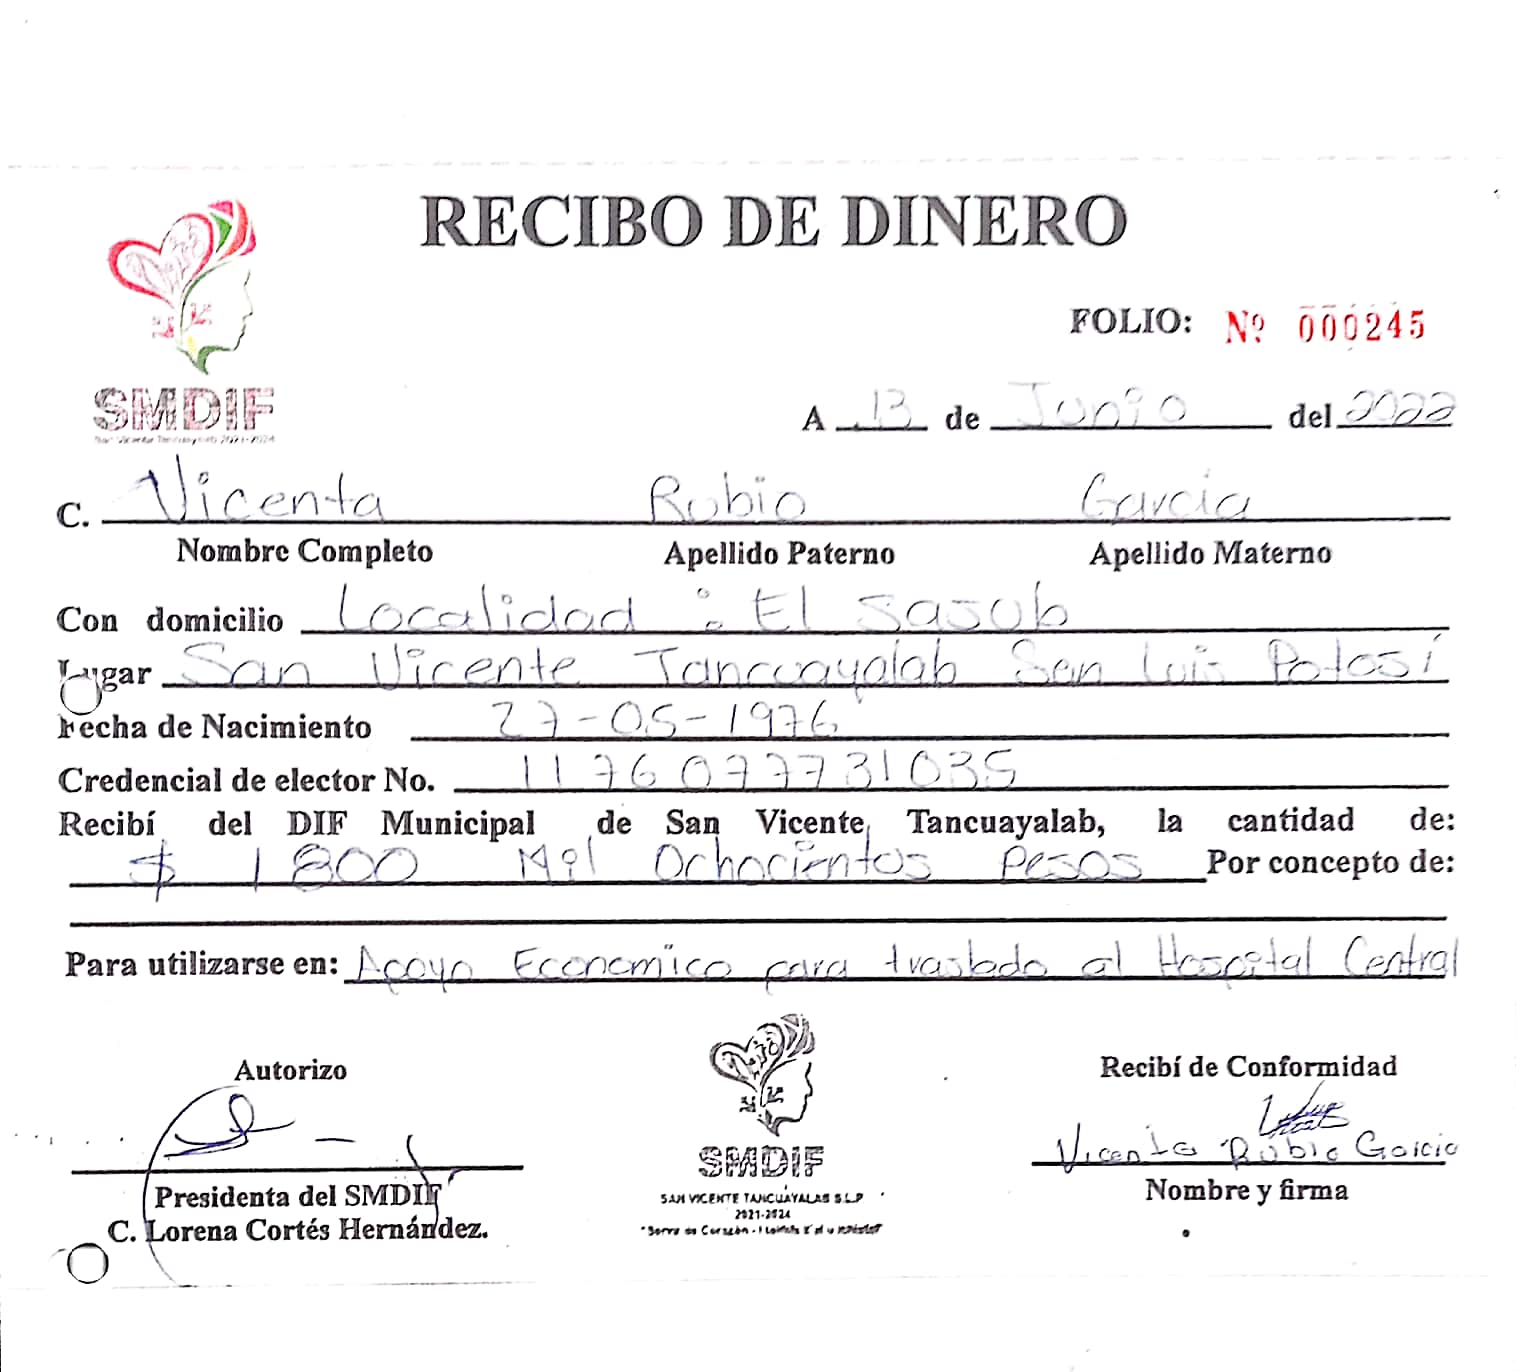 RECIBO DE DINERO
FOLIO: Nº 000245
SMDIF
San Vicente Tancuayalab 2021-2024
A 13 de Junio del 2022
C. Vicenta Rubio Garcia
Nombre Completo Apellido Paterno Apellido Materno
Con domicilio Localidad : El Sasub
Lugar San Vicente Tancuayalab San Luis Potosí
Fecha de Nacimiento 27-05-1976
Credencial de elector No. 1176077731035
Recibí del DIF Municipal de San Vicente Tancuayalab, la cantidad de:
$ 1800 Mil Ochocientos Pesos Por concepto de:
Para utilizarse en: Apoyo Economico para traslado al Hospital Central
Autorizo
Recibí de Conformidad
SMDIF
Vicenta Rubio Garcia
Presidenta del SMDIF
Nombre y firma
SAN VICENTE TANCUAYALAB S.L.P
2021-2024
C. Lorena Cortés Hernández.